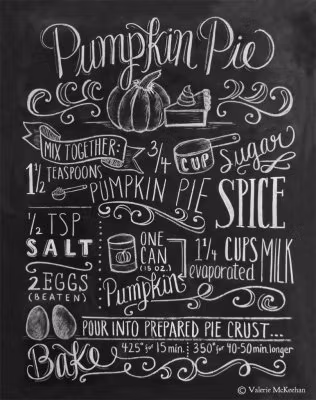 Pumpkin Pie
MIX TOGETHER:
3/4 CUP Sugar
1 1/2 TEASPOONS
PUMPKIN PIE SPICE
1/2 TSP
SALT
ONE
CAN
(15 OZ.)
Pumpkins
1 1/4 CUPS
evaporated MILK
2 EGGS
(BEATEN)
POUR INTO PREPARED PIE CRUST...
Bake 425° for 15 min. 350° for 40-50 min. longer
© Valerie McKeehan